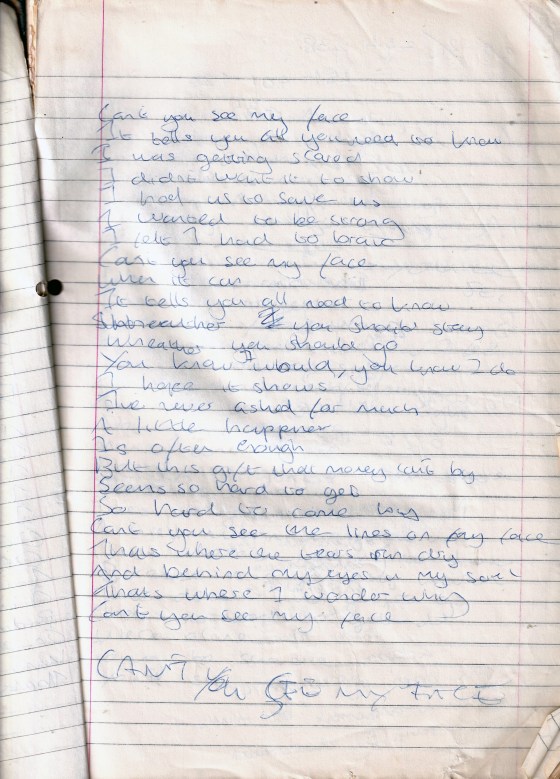 Cant you see my face
It tells you all you need to know
I was getting scared
I didnt want it to show
I had us to save us
I wanted to be strong
I felt I had to brave
Cant you see my face
when it can
It tells you all need to know
you should stay
Wheather you should go
You know I would, you know I do
I hope it shows
Ive never asked for much
A little happner
Is often enough
But this gift that money cant by
Seems so hard to get
So hard to come by
Cant you see the lines on my face
Thats where the tears run dry
And behind my eyes is my soul
Thats where I wonder why
Cant you see my face
CANT You SEE MY FACE